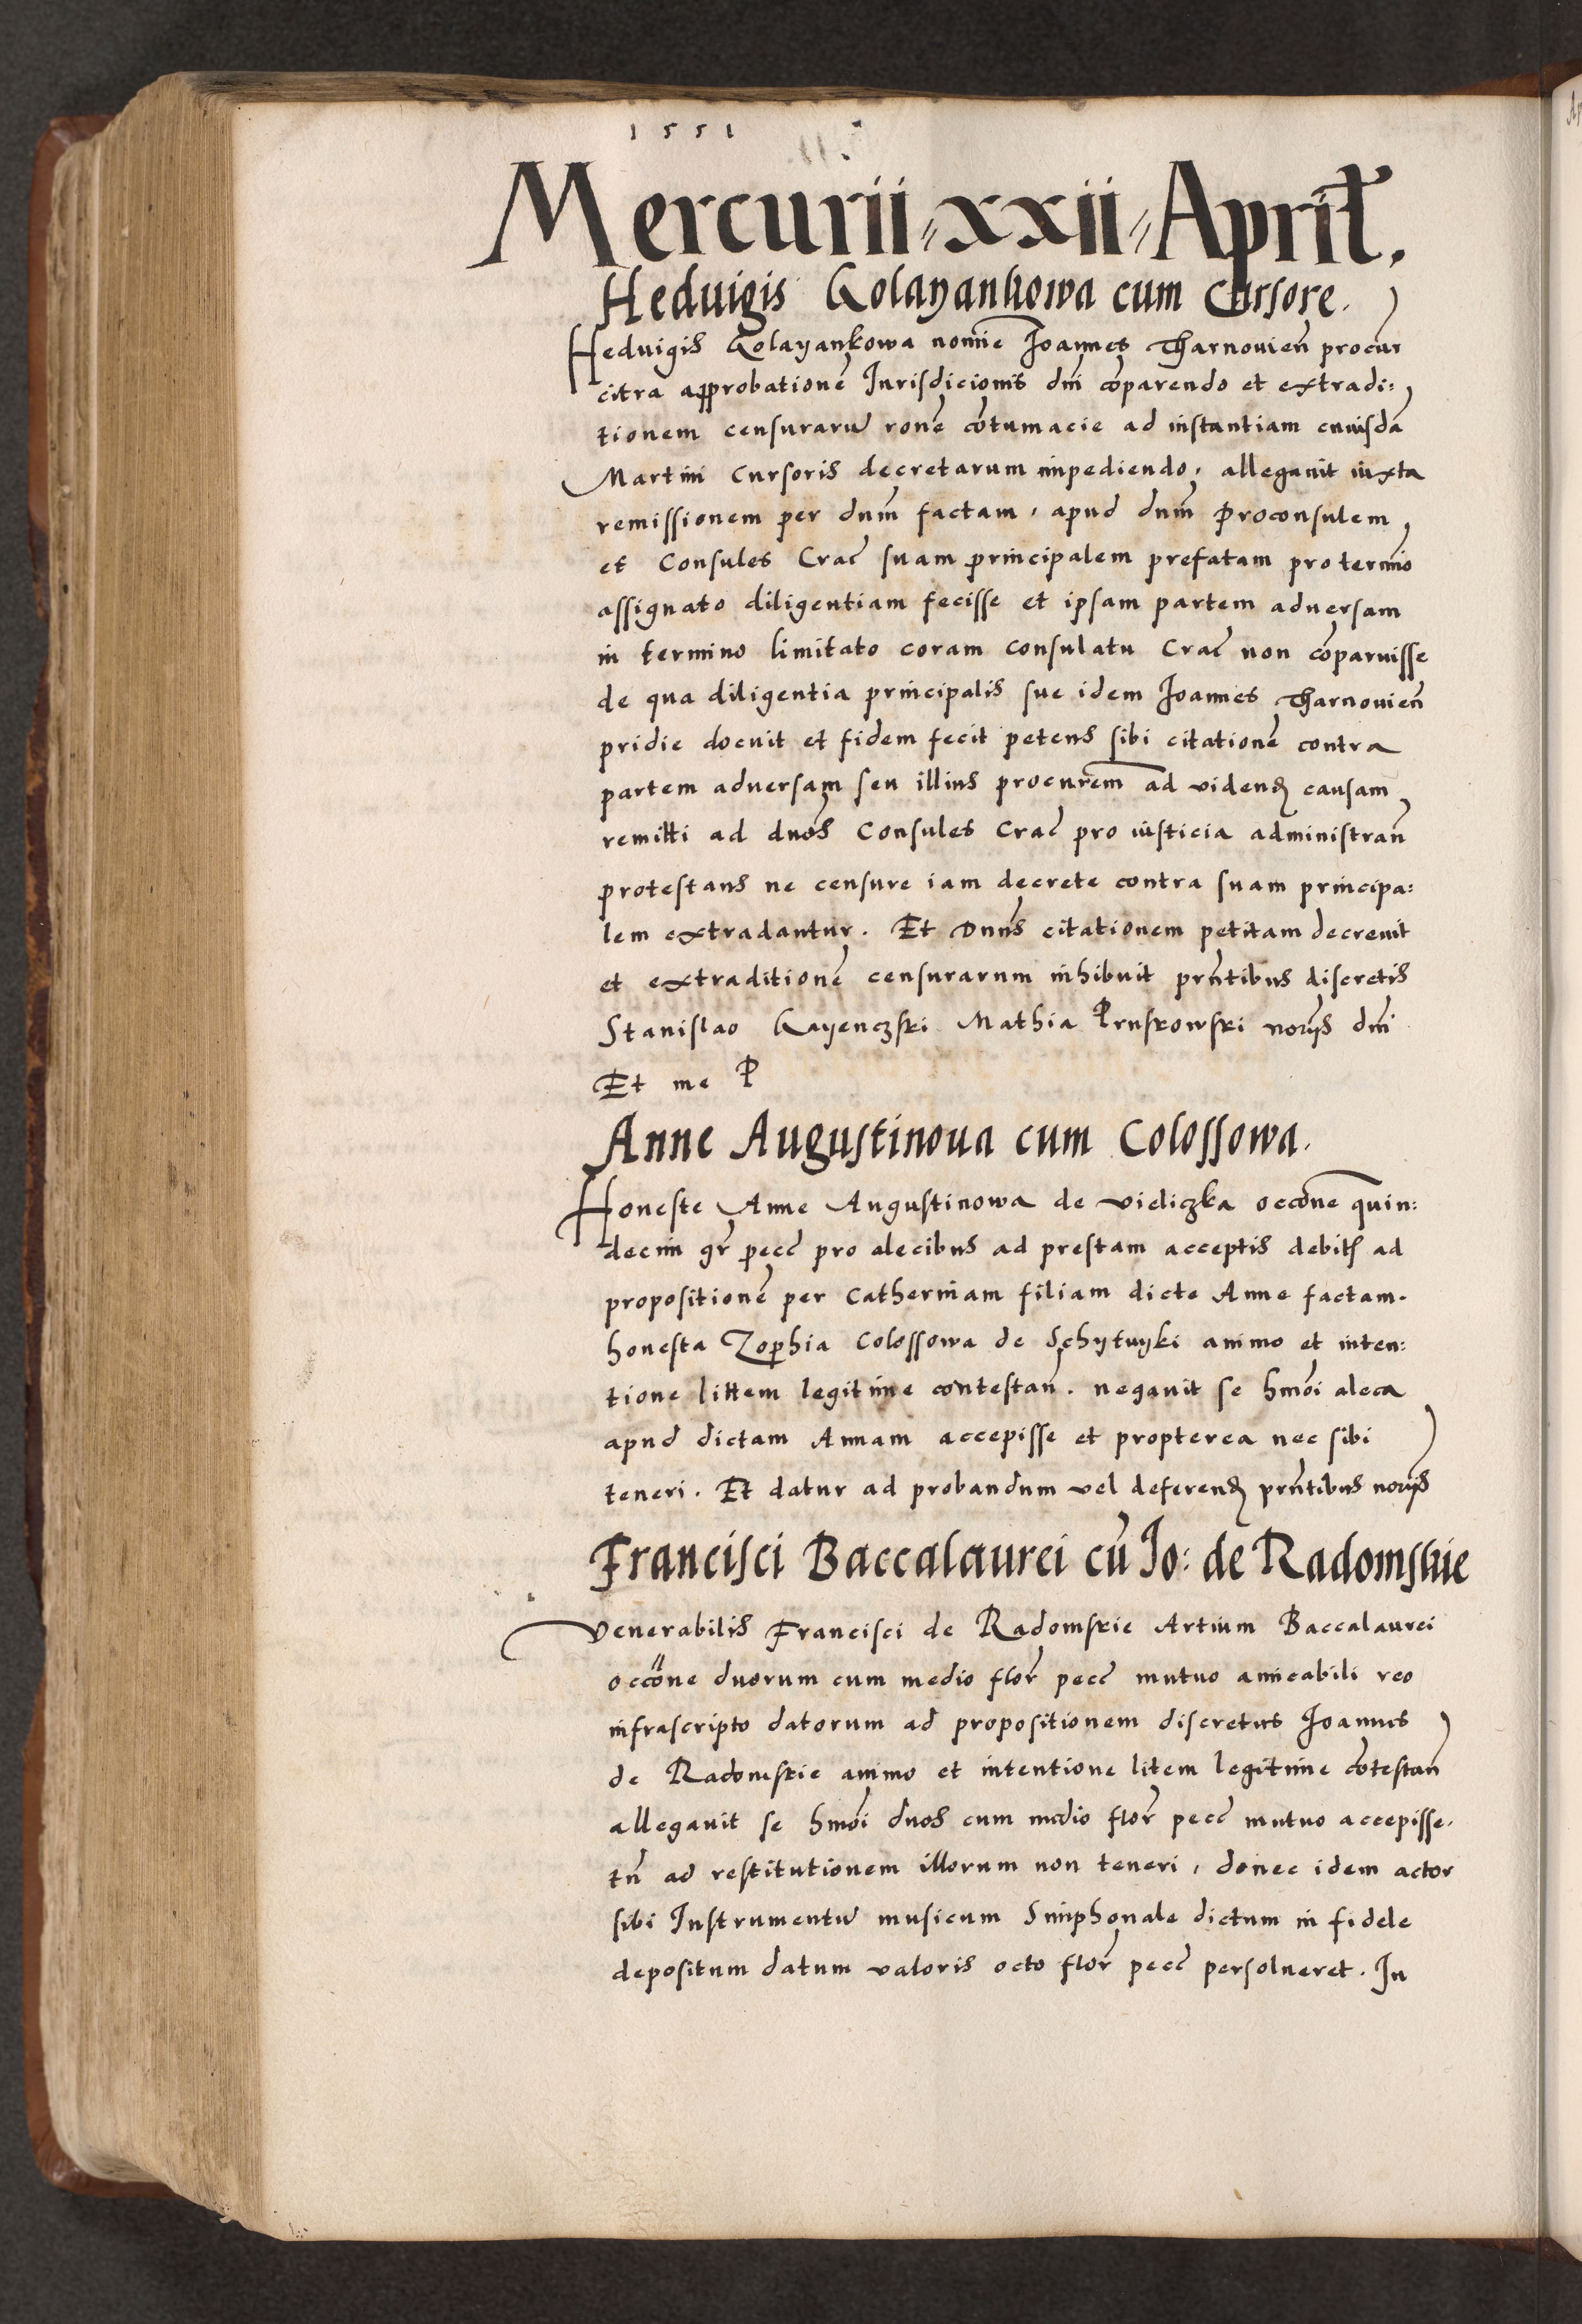 1551
Mercurii xxii April.
Heduigis Kolayankowa cum Cursore.
Heduigis Kolayankowa nomie Joannes Tharnouien̄ procur
citra approbationē Jurisdicionis dn̄i cōparendo et extradi:
tionem censurarū ronē cōtumacie ad instantiam cuiusdā
Martini Cursoris decretarum impediendo, allegauit iuxta
remissionem per dnm̄ factam, apud dnm̄ Proconsulem
et Consules Crac̄ suam principalem prefatam pro termīo
assignato diligentiam fecisse et ipsam partem aduersam
in termino limitato coram consulatu Crac̄ non cōparuisse
de qua diligentia principalis sue idem Joannes Tharnouien̄
pridie docuit et fidem fecit petens sibi citationē contra
partem aduersam seu illius procurem̄ ad videnđ causam
remitti ad dnōs Consules Crac̄ pro iusticia administran̄
protestans ne censure iam decrete contra suam principa:
lem extradantur. Et Dnn̄s citationem petitam decreuit
et extraditionē censurarum inhibuit prn̄tibus discretis
Stanislao Kayenczski Mathia Pruskowski norijs dn̄i
Et me P
Anne Augustinoua cum Colossowa.
Honeste Anne Augustinowa de vieliczka occōne quin:
decim gr̄ pecc̄ pro alecibus ad prestam acceptis debitꝭ ad
propositionē per Catherinam filiam dicte Anne factam.
honesta Zophia Colossowa de Schytuyki animo et inten:
tione littem legitime contestan̄. negauit se hmōi aleca
apud dictam Annam accepisse et propterea nec sibi
teneri. Et datur ad probandum vel deferenđ prn̄tibus norijs
Francisci Baccalaurei cū Jo: de Radomskie
Venerabilis Francisci de Radomskie Artium Baccalaurei
occōne duorum cum medio flor̄ pecc̄ mutuo amicabili reo
infrascripto datorum ad propositionem discretus Joannes
de Radomskie animo et intentione litem legitime cōtestan̄
allegauit se hmōi duos cum medio flor̄ pecc̄ mutuo accepisse.
tn̄ ad restitutionem illorum non teneri, donec idem actor
sibi Instrumentū musicum Simphonale dictum in fidele
depositum datum valoris octo flor̄ pecc̄ persolueret. In